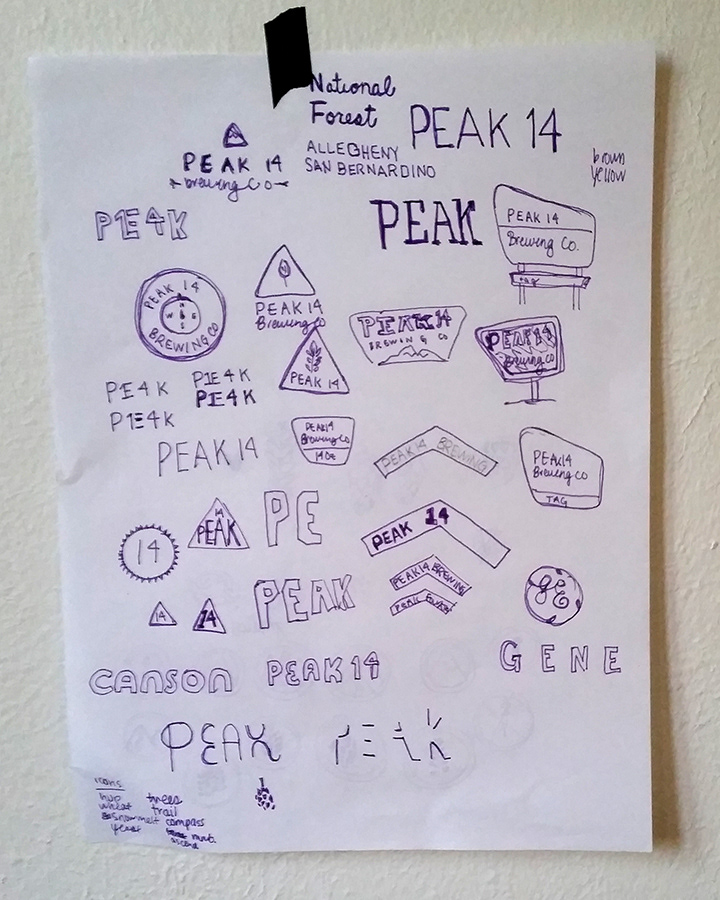 National
Forest
PEAK 14
ALLEGHENY
SAN BERNARDINO
brown
yellow
PEAK 14
brewing Co
PE4K
PEAK
PEAK 14
Brewing Co.
tag
PEAK 14
N
W E
S
BREWING CO
PEAK 14
Brewing CO
PEAK 14
BREWING CO
PEAK14
Brewing Co
PEAK 14
PE4K
P1E4K
PE4K
P1E4K
PEAK 14
PEAK14
Brewing Co
PEAK 14 BREWING
PEAK14
Brewing CO
TAG
14
14
PEAK
PE
PEAK 14
PEAK14 BREWING
PEAK
14
14
PEAK
GE
CANSON
PEAK 14
GENE
PEAK
icons
hop
wheat
snowmelt
yeast
trees
trail
compass
mnt.
ascend